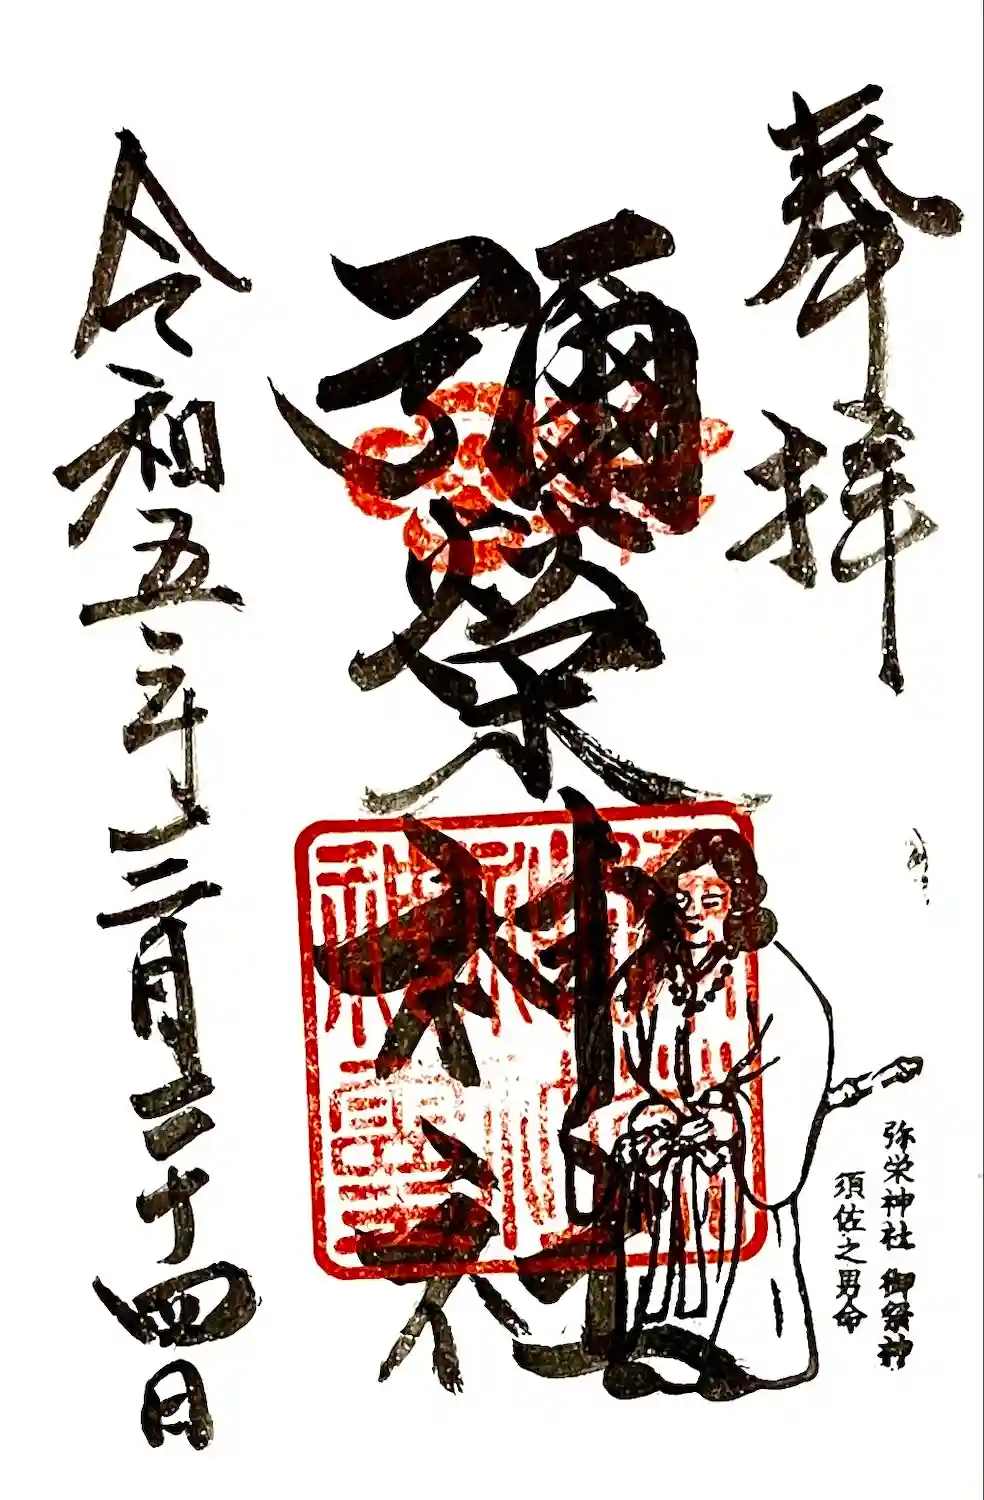 奉拝
彌榮神社
弥栄神社 御祭神
須佐之男命
令和五年二月二十四日